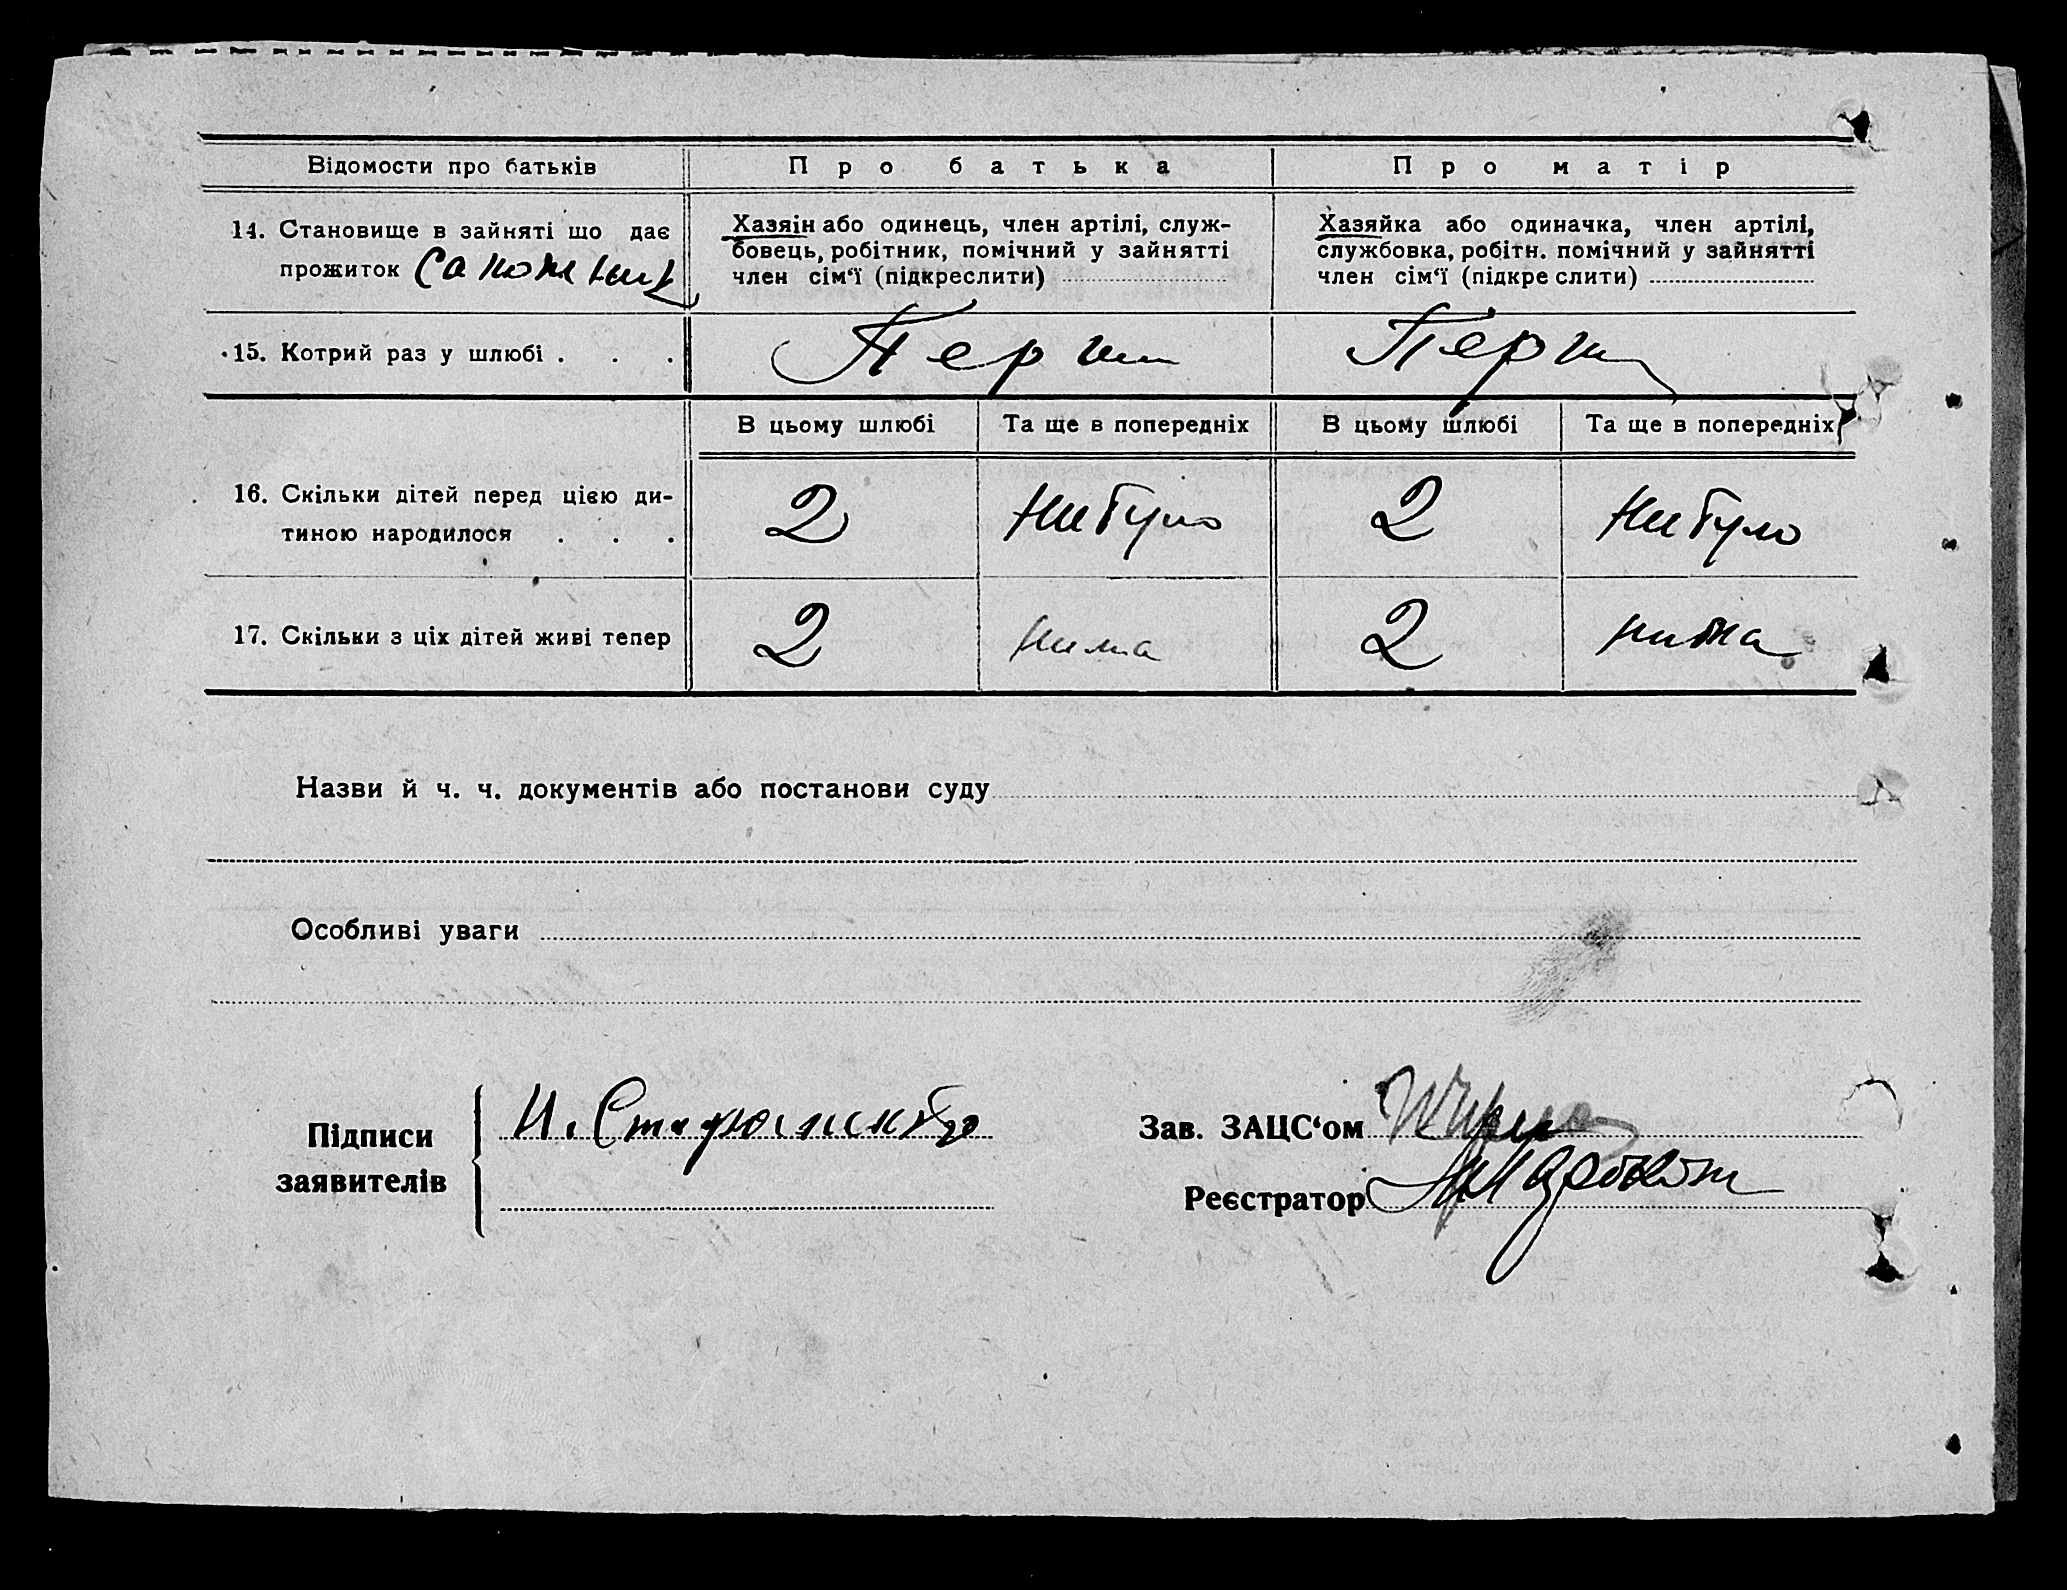 Відомости про батьків
Про батька
Про матір
14. Становище в зайняті що дає
прожиток Сапожник
Хазяін або одинець, член артілі, служ-
бовець, робітник, помічний у зайнятті
член сім‘ї (підкреслити)
Хазяйка або одиначка, член артілі,
службовка, робітн. помічний у зайнятті
член сім‘ї (підкре слити)
15. Котрий раз у шлюбі . . .
Перш
Перш
В цьому шлюбі
Та ще в попередніх
В цьому шлюбі
Та ще в попередніх
16. Скільки дітей перед цією ди-
тиною народилося . . .
2
Нибуло
2
Нибуло
17. Скільки з ціх дітей живі тепер
2
Нима
2
нима
Назви й ч. ч. документів або постанови суду
Особливі уваги
Підписи
заявителів
И.
Зав. ЗАЦС‘ом
Реєстратор